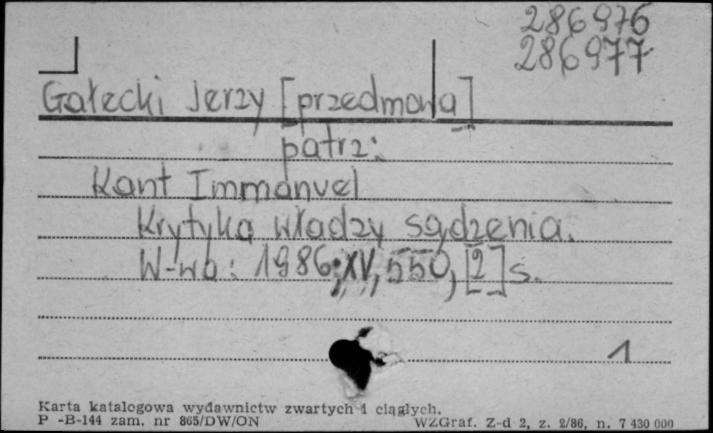 286976
286977
Gałecki Jerzy [przedmowa]
patrz:
Kant Immanuel
Krytyka władzy sądzenia.
W-wa: 1986; XV, 550, [2] s.
1
Karta katalogowa wydawnictw zwartych i ciągłych.
P -B-144 zam. nr 865/DW/ON WZGraf. Z-d 2, z. 2/86, n. 7 430 000